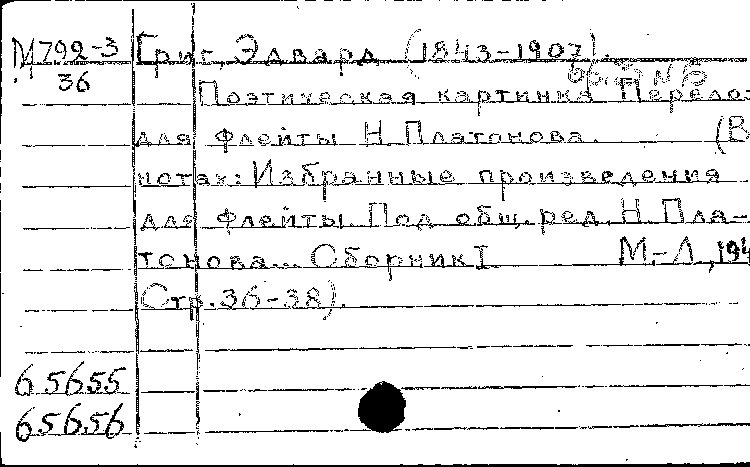 М792-3 Григ, Эдвард (1843-1907).
36
Поэтическая картинка Перело-
для флейты Н Платонова. (В
нотах: Избранные произведения
для флейты Под общ. ред. Н Пла-
тонова... Сборник I М.-Л, 194
Стр. 36-38).
65655
65656